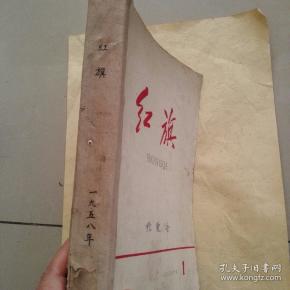 红旗
一九五八年
红旗
HONGQI
1
孔夫子旧书网